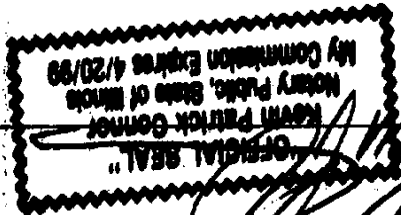 "OFFICIAL SEAL"
Kevin Patrick Connor
Notary Public, State of Illinois
My Commission Expires 4/20/99